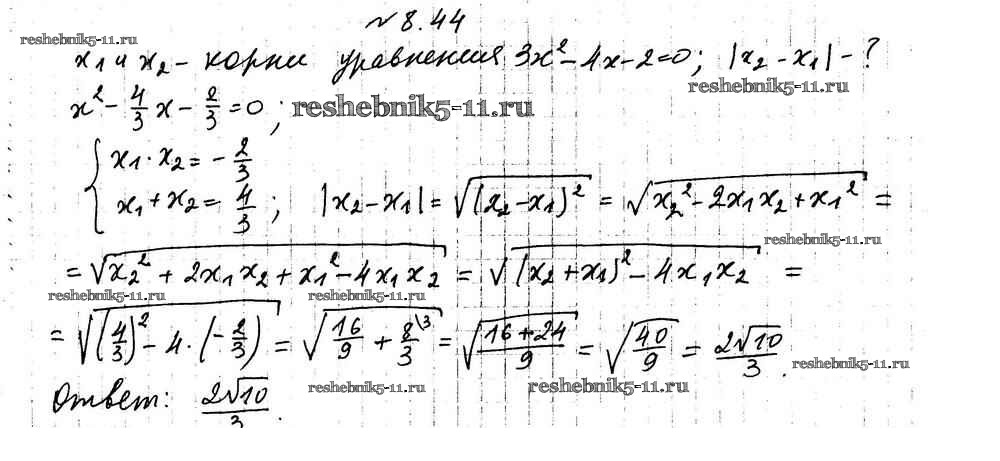 № 8.44
reshebnik5-11.ru
x₁ и x₂ - корни уравнения 3x² - 4x - 2 = 0; |x₂ - x₁| - ?
reshebnik5-11.ru
x² - 4/3 x - 2/3 = 0; reshebnik5-11.ru
{ x₁ · x₂ = - 2/3
x₁ + x₂ = 4/3; |x₂ - x₁| = √((x₂ - x₁)²) = √(x₂² - 2x₁x₂ + x₁²) =
reshebnik5-11.ru
= √(x₂² + 2x₁x₂ + x₁² - 4x₁x₂) = √((x₂ + x₁)² - 4x₁x₂) =
reshebnik5-11.ru reshebnik5-11.ru
= √((4/3)² - 4 · (- 2/3)) = √(16/9 + 8/3 \3) = √((16 + 24)/9) = √(40/9) = 2√10/3.
reshebnik5-11.ru
Ответ: 2√10/3. reshebnik5-11.ru reshebnik5-11.ru